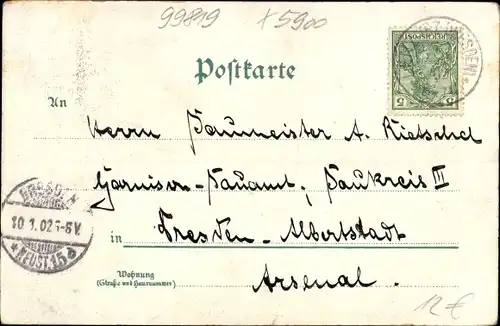 99819 x 5900
Postkarte
REICHSPOST
5 5
An
Herrn Baumeister A. Rietschel
Garnison-Bauamt, Baukreis III
DRESD
10.1.02. 5-6V.
* NEUST. 15 d
in Dresden-Albertstadt
Wohnung
(Straße und Hausnummer)
Arsenal.
12€